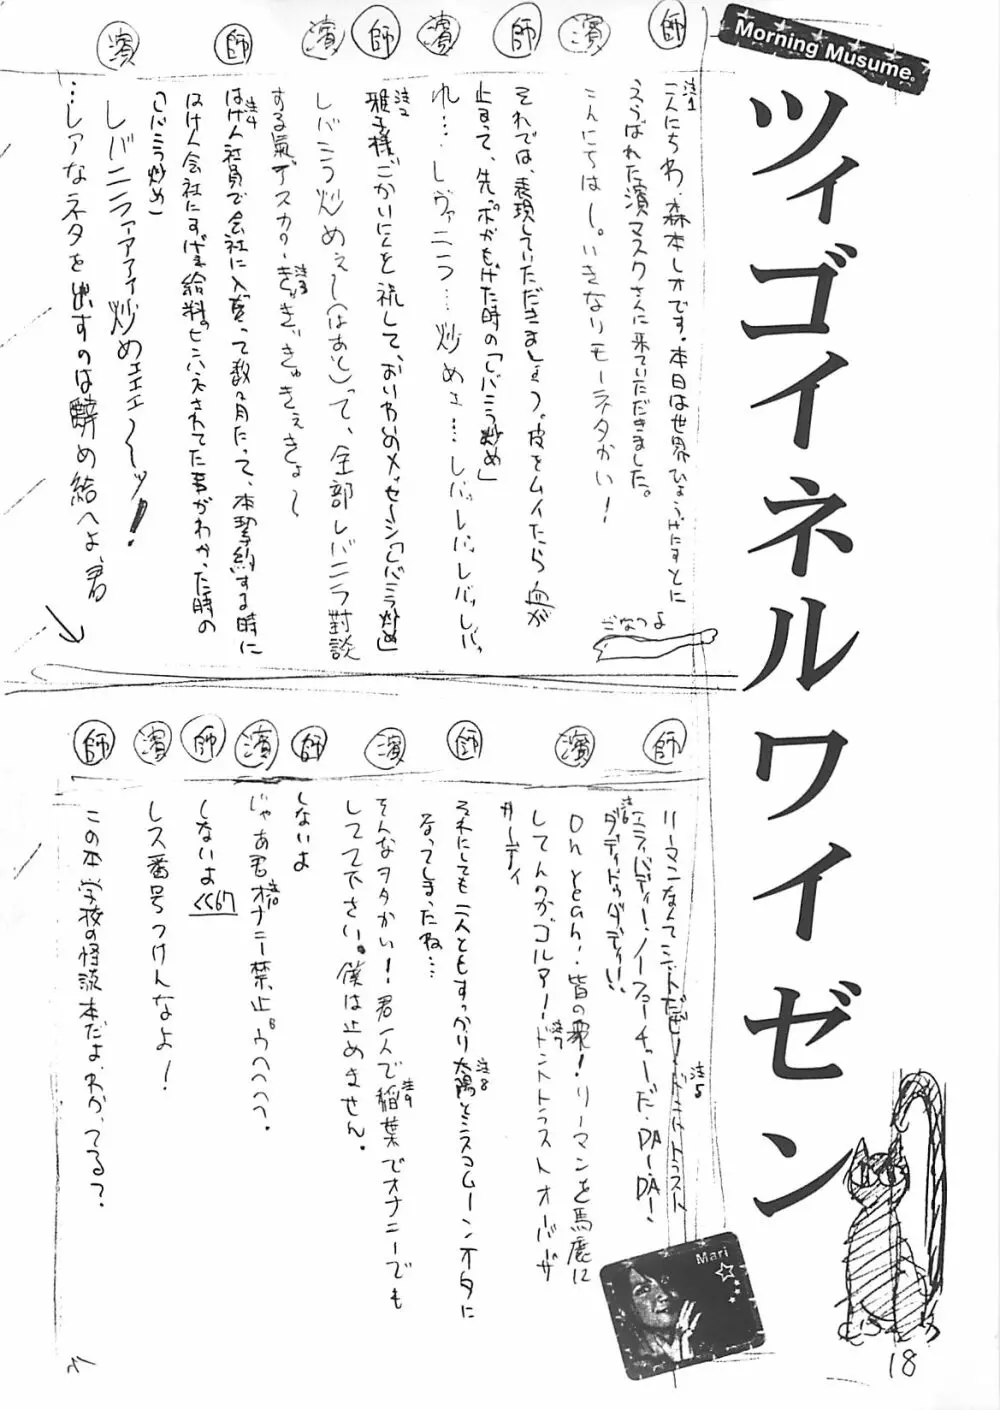 Morning Musume.
ツィゴイネルワイゼン
師
こんにちわ、森本レオです。本日は世界ひょうがにすとに
えらばれた濱マスクさんに来ていただきました。
濱
こんにちはー。いきなりモーネタかい!
師
それでは、表現していただきましょう。皮をムイたら血が
止まって、先っポがもげた時の「レバニラ炒め」
濱
れ…レヴァニラ…炒めェ…レバッレバッレバッレバッ
師
注2
雅子様ごかいにんを祝して、おいわいのメッセージ「レバニラ炒め」
濱
レバニラ炒めぇ〜(はあと)って、全部レバニラ対談
する氣デスカ
注3
師
注4
はけん社員で会社に入って数ヶ月たって、本契約する時に
はけん会社にすげえ給料のピンハネされてた事がわかった時の
「レバニラ炒め」
濱
レバニラァアァァ炒めェェェ〜〜ッ!
…レアなネタを出すのは辞め給へよ、君
ごなつよ
師
注5
注6
ダディドゥダディ!!
濱
Oh yeah!皆の衆!リーマンを馬鹿に
してんのかゴルアー!ドントトラストオーバーサ
ーティ
注7
師
それにしても二人ともすっかり太陽とシスコムーンオタに
なってしまったね…
注8
濱
そんなヲタかい!君一人で稲葉でオナニーでも
してて下さい。僕は止めません。
注9
師
しないよ
濱
じゃあ君オナニー禁止
注10
師
しないよ <<67
濱
レス番号つけんなよ!
師
この本学校の怪談本だよ、わかってる?
Mari
18